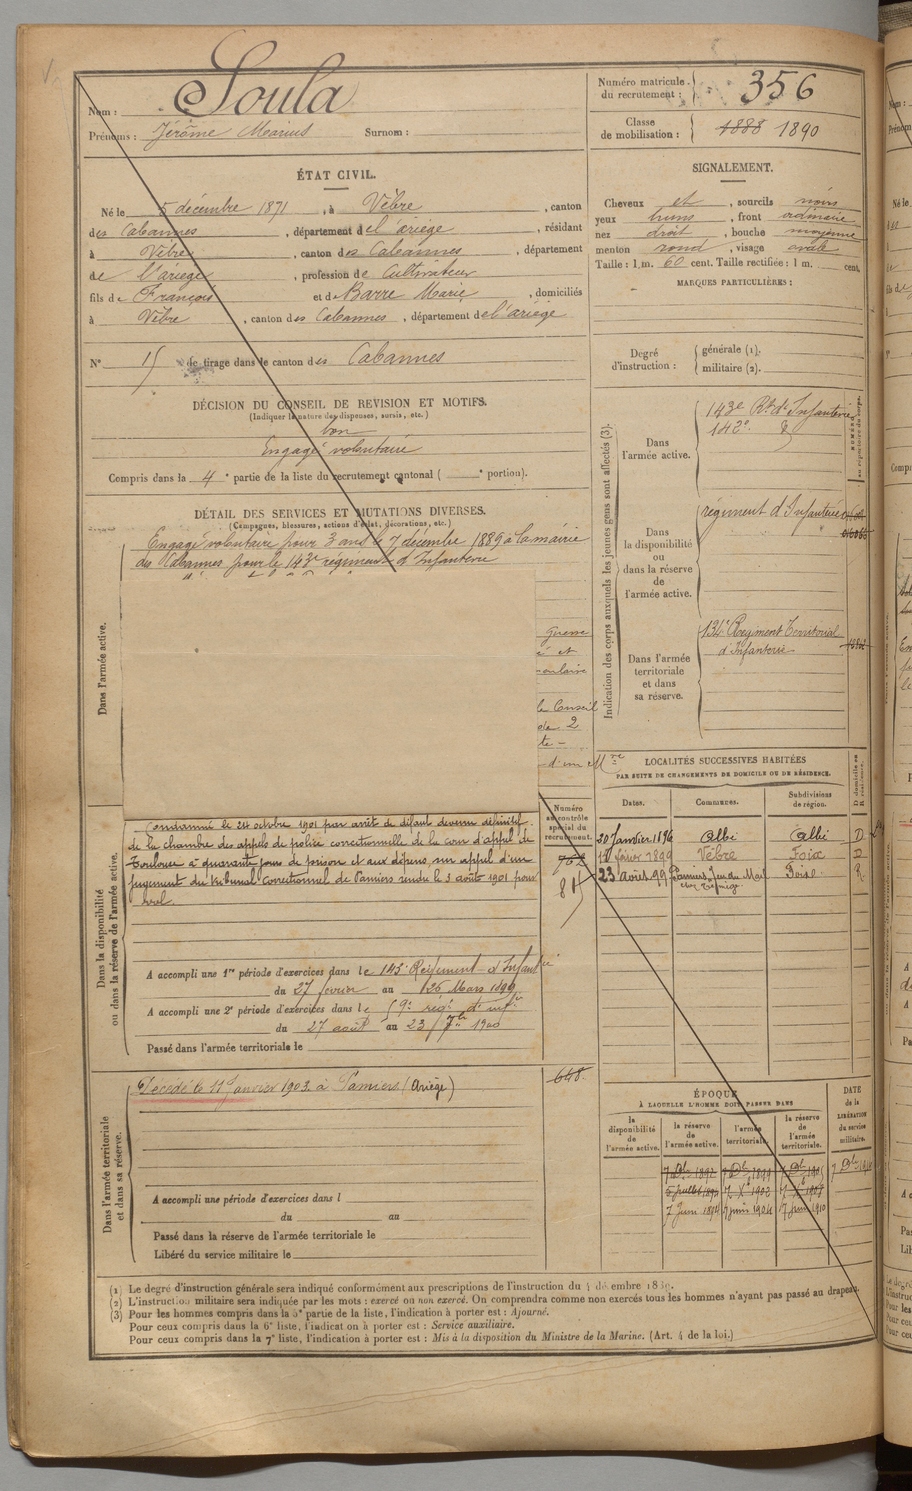 Nom : Soula
Prénoms : Jérôme Marius Surnom :
Numéro matricule du recrutement : 356
Classe de mobilisation : 1888 1890
ÉTAT CIVIL.
Né le 5 décembre 1871, à Vèbre, canton
des Cabannes, département de l'ariège, résidant
à Vèbre, canton des Cabannes, département
de l'ariège, profession de Cultivateur
fils de François et de Barre Marie, domiciliés
à Vèbre, canton des Cabannes, département de l'ariège
N° 15 de tirage dans le canton des Cabannes
DÉCISION DU CONSEIL DE REVISION ET MOTIFS.
(Indiquer la nature des dispenses, sursis, etc.)
bon
Engagé volontaire
Compris dans la 4e partie de la liste du recrutement cantonal ( e portion).
SIGNALEMENT.
Cheveux et, sourcils noirs
yeux bruns, front ordinaire
nez droit, bouche moyenne
menton rond, visage ovale
Taille : 1 m. 60 cent. Taille rectifiée : 1 m. cent.
MARQUES PARTICULIÈRES :
Degré d'instruction :
générale (1).
militaire (2).
DÉTAIL DES SERVICES ET MUTATIONS DIVERSES.
(Campagnes, blessures, actions d'éclat, décorations, etc.)
Dans l'armée active.
Engagé volontaire pour 3 ans le 7 décembre 1889 à la mairie
des Cabannes pour le 143e régiment d'Infanterie
Guerre
é et
le Conseil
de 2
te –
d'un Mre
Indication des corps auxquels les jeunes gens sont affectés (3).
Dans l'armée active.
143e Rt d'Infanterie
142e
Dans la disponibilité ou dans la réserve de l'armée active.
régiment d'Infanterie
Dans l'armée territoriale et dans sa réserve.
134e Régiment Territorial
d'Infanterie
Dans la disponibilité ou dans la réserve de l'armée active.
Condamné le 24 octobre 1901 par arrêt de défaut devenu définitif
de la chambre des appels de police correctionnelle de la cour d'appel de
Toulouse à quarante jours de prison et aux dépens, sur appel d'un
jugement du tribunal correctionnel de Pamiers rendu le 3 août 1901 pour
vol.
A accompli une 1re période d'exercices dans le 143e Régiment d'Infanterie
du 27 février au 26 Mars 1896
A accompli une 2e période d'exercices dans le 59e régt d'infie
du 27 août au 23 7bre 1900
Passé dans l'armée territoriale le
Numéro au contrôle spécial du recrutement.
815
648
LOCALITÉS SUCCESSIVES HABITÉES
PAR SUITE DE CHANGEMENTS DE DOMICILE OU DE RÉSIDENCE.
Dates. Communes. Subdivisions de région. D domicile ou R résidence.
30 Janvier 1896 Albi Albi D
12 févier 1899 Vèbre Foix D
23 Août 99 Pamiers, Jeu du Mail Foix R
Dans l'armée territoriale et dans sa réserve.
Décédé le 11 Janvier 1903 à Pamiers (Ariège)
A accompli une période d'exercices dans l
du au
Passé dans la réserve de l'armée territoriale le
Libéré du service militaire le
ÉPOQUE
À LAQUELLE L'HOMME DOIT PASSER DANS
la disponibilité de l'armée active. la réserve de l'armée active. l'armée territoriale. la réserve de l'armée territoriale. DATE de la LIBÉRATION du service militaire.
7 Xbre 1892 7 Xbre 1899
7 Xe 1902
7 Juin 1894 7 juin 1904 7 juin 1910
(1) Le degré d'instruction générale sera indiqué conformément aux prescriptions de l'instruction du 4 décembre 1889.
(2) L'instruction militaire sera indiquée par les mots : exercé ou non exercé. On comprendra comme non exercés tous les hommes n'ayant pas passé au drapeau.
(3) Pour les hommes compris dans la 5e partie de la liste, l'indication à porter est : Ajourné.
Pour ceux compris dans la 6e liste, l'indication à porter est : Service auxiliaire.
Pour ceux compris dans la 7e liste, l'indication à porter est : Mis à la disposition du Ministre de la Marine. (Art. 4 de la loi.)